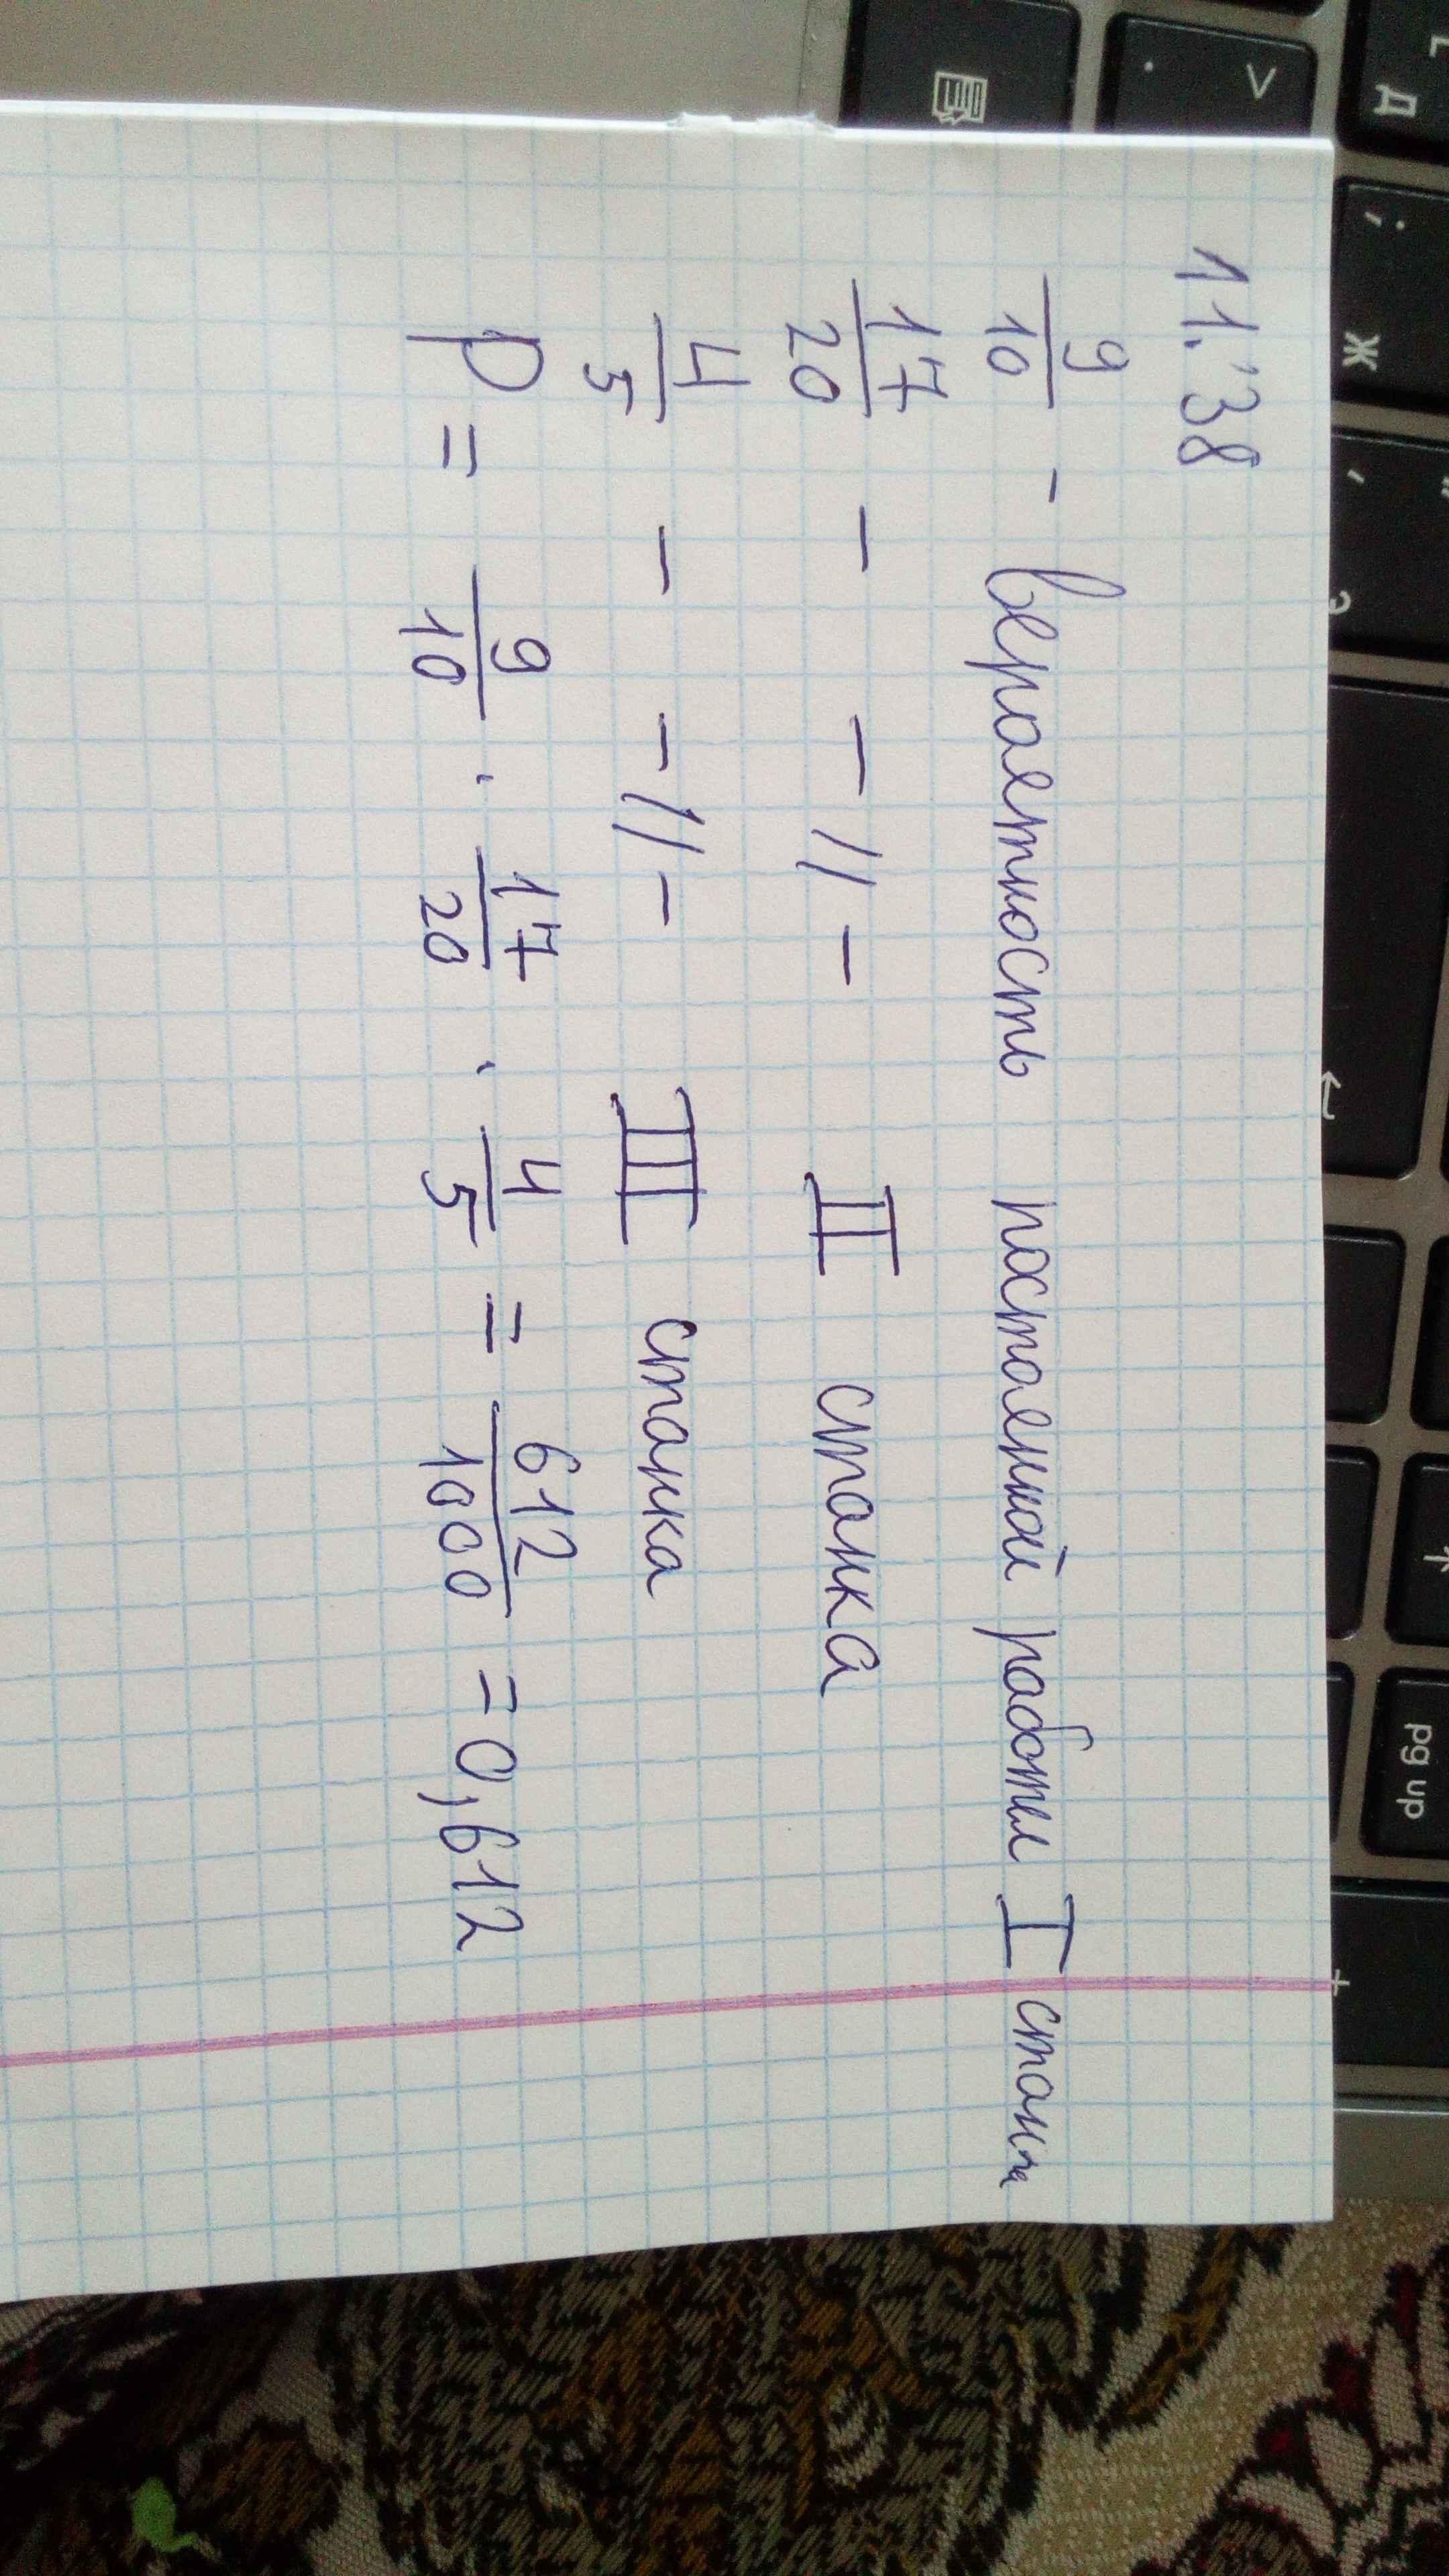 11.38
9/10 - вероятность постоянной работы I станка
17/20 - -//- II станка
4/5 - -//- III станка
P = 9/10 · 17/20 · 4/5 = 612/1000 = 0,612
Д
Ж
Э
pg up